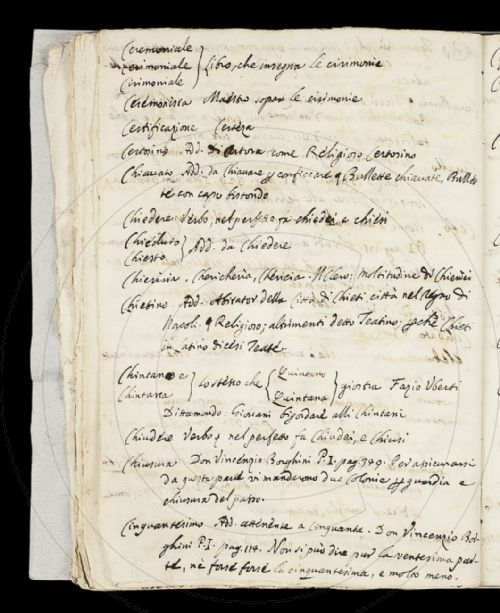 Ceremoniale
Cerimoniale } Libro, che insegna le cirimonie
Cirimoniale
Ceremonista Maestro sopra le cirimonie
Certificazione Certeza
Certosino Add. di Certosa come Religioso Certosino
Chiavato Add. da Chiavare p conficcare Bullette chiavate, Bullet-
te con capo rotondo
Chiedere Verbo, nel perfetto fà chiedei e chiesi
Chieduto } Add. da Chiedere
Chiesto
Chieresia. Chericheria, Chericia Il Clero; moltitudine di Chierici
Chietino. Add. Abitator della Città di Chieti città nel Regno di
Napoli. Religioso; altrimenti detto Teatino; pchè Chieti
in Latino dicesi Teate.
Chintano e } lo stesso che { Quintano } giostra Fazio Uberti
Chintana Quintana
Dittamondo: Giovani alli Chintani
Chiudere Verbo, nel perfetto fà Chiudei, e Chiusi
Chiusura Don Vincenzio Borghini P.I. pag. 349. Per assicurarsi
da queste parti vi mandarono due Colonie p guardia e
chiusura del passo.
Cinquantesimo Add. attenente a Cinquanta. Don Vincenzio Bor-
ghini P.I. pag. 114. Non si può dire pur la ventesima par-
te, nè forse forse la cinquantesima, e molto meno.